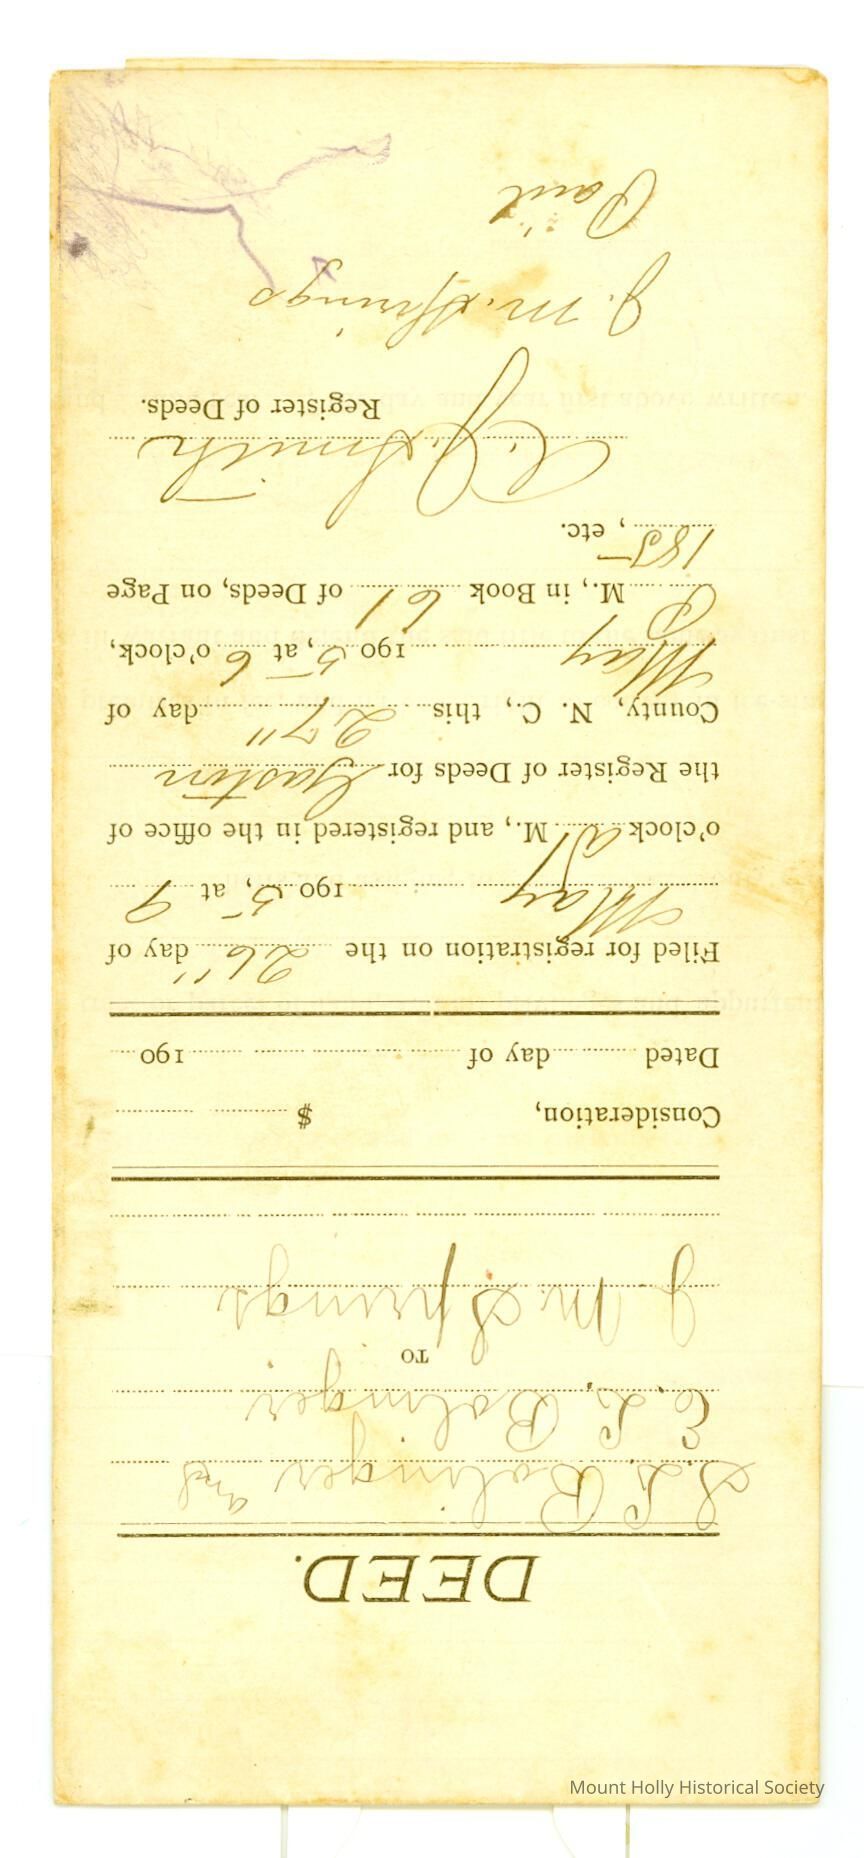 DEED.
S. L. Bolinger and
E. L. Bolinger
TO
J. M. Springs
Consideration, $
Dated day of 190
Filed for registration on the 26" day of
May 1905, at 9
o'clock A M., and registered in the office of
the Register of Deeds for Gaston
County, N. C., this 27" day of
May 1905, at 6 o'clock,
P M., in Book 61 of Deeds, on Page
185, etc.
A. J. Smith
Register of Deeds.
J. M. Springs
Paid
Mount Holly Historical Society